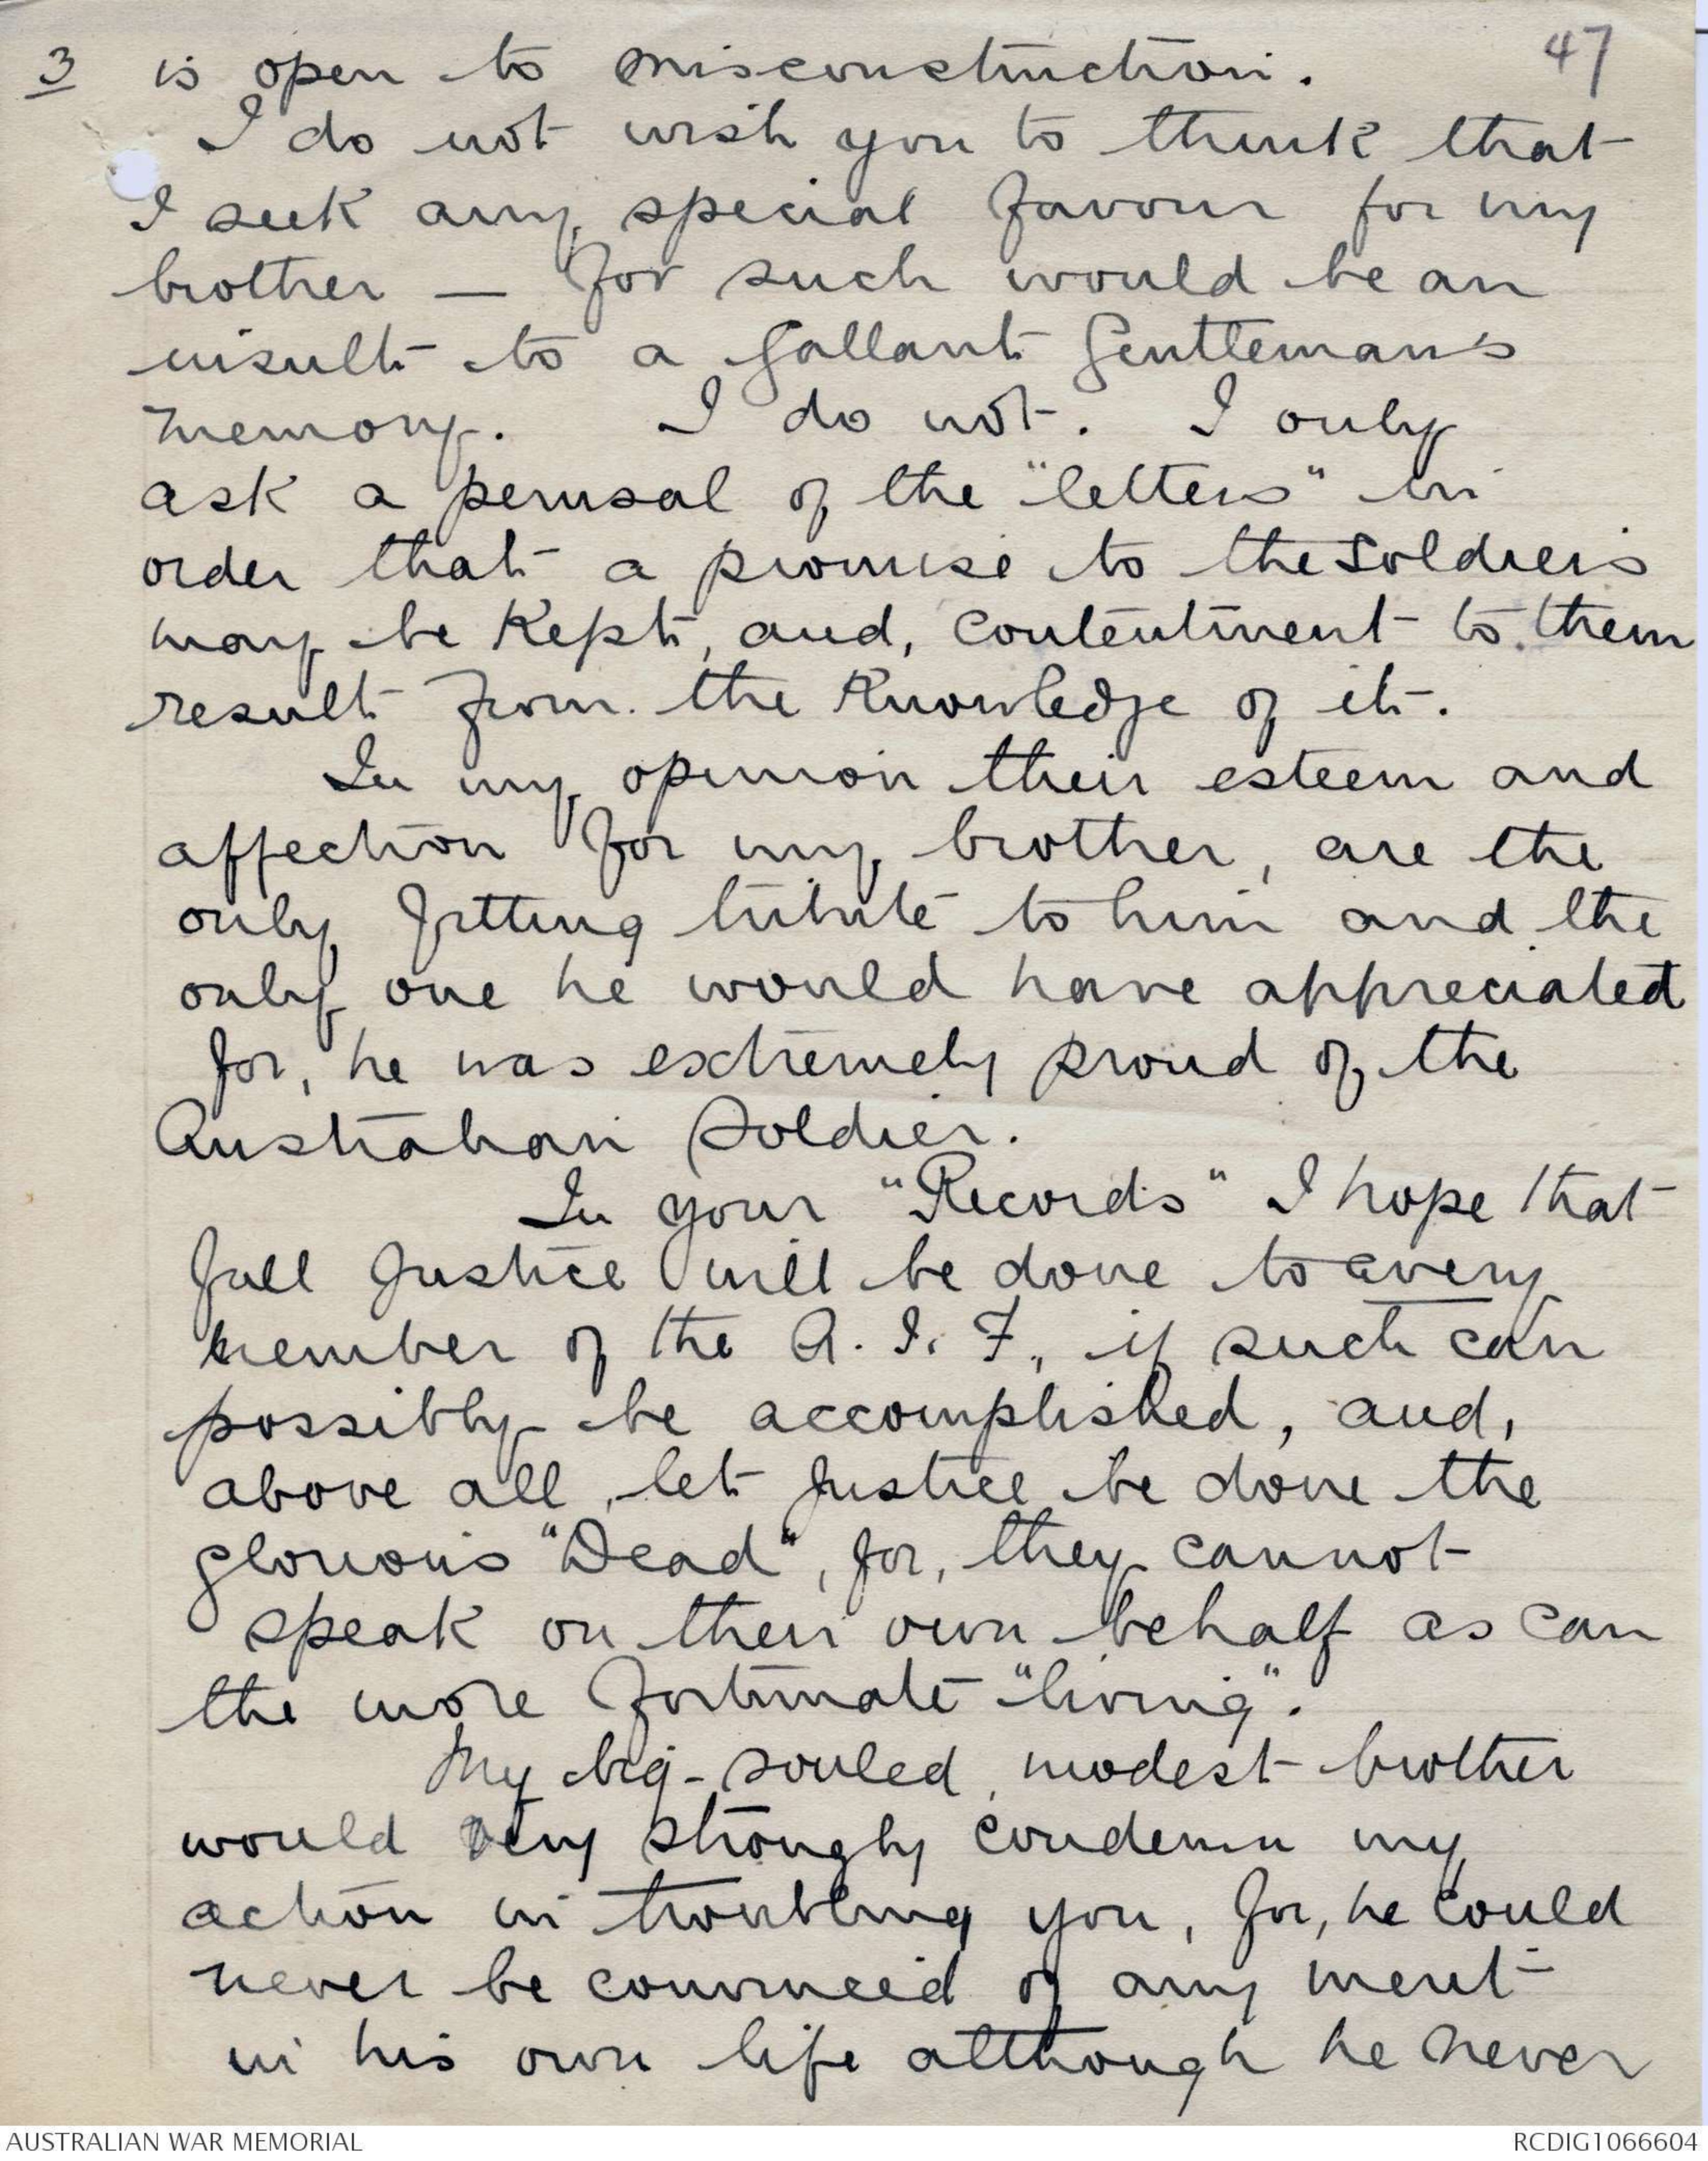 3 is open to misconstruction. 47
I do not wish you to think that
I seek any special favour for my
brother — for such would be an
insult to a Gallant Gentleman's
memory. I do not. I only
ask a perusal of the "letters" in
order that a promise to the Soldiers
may be Kept, and, contentment to them
result from the Knowledge of it.
In my opinion their esteem and
affection for my brother, are the
only fitting tribute to him and the
only one he would have appreciated
for, he was extremely proud of the
Australian Soldier.
In your "Records" I hope that
full Justice will be done to every
member of the A. I. F., if such can
possibly be accomplished, and,
above all, let Justice be done the
glorious "Dead", for, they cannot
speak on their own behalf as can
the more fortunate "living".
My big-souled, modest brother
would very strongly condemn my
action in troubling you, for, he could
never be convinced of any merit
in his own life although he never
AUSTRALIAN WAR MEMORIAL RCDIG1066604